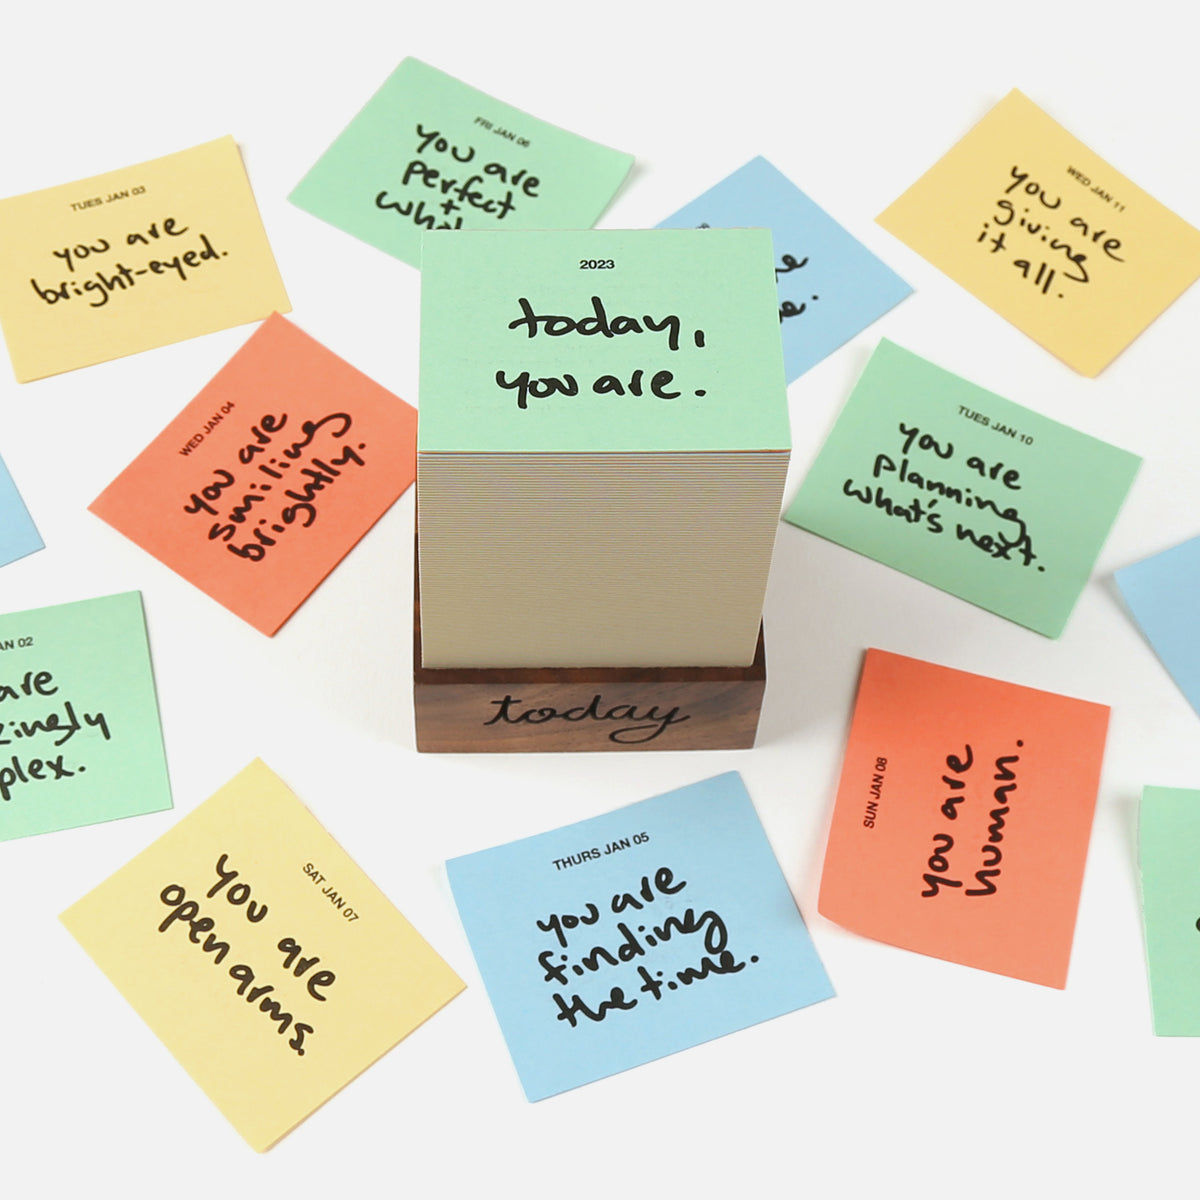 FRI JAN 06
you are
perfect
+
WED JAN 11
you are
giving
it all.
TUES JAN 03
you are
bright-eyed.
2023
today,
you are.
WED JAN 04
you are
smiling
brightly.
TUES JAN 10
you are
planning
what's next.
today
02
are
SUN JAN 08
you are
human.
SAT JAN 07
you are
open arms.
THURS JAN 05
you are
finding
the time.